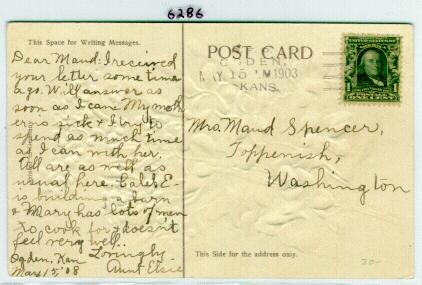 6286
This Space for Writing Messages.
POST CARD
OGDEN,
MAY 15 M 1903
KANS.
1
ONE CENT
Dear Maud: I received
your letter some time
ago. Will answer as
soon as I can. My moth
er is sick & I try to
spend as much time
as I can with her.
All are as well as
usual here. Caleb E-
is building a barn
& Mary has lots of men
to cook for & doesn't
feel very well.
Lovingly
Aunt Elsie
Ogden, Kan
May 15, '08
Mrs. Maud Spencer,
Toppenish,
Washington
This Side for the address only.
20-